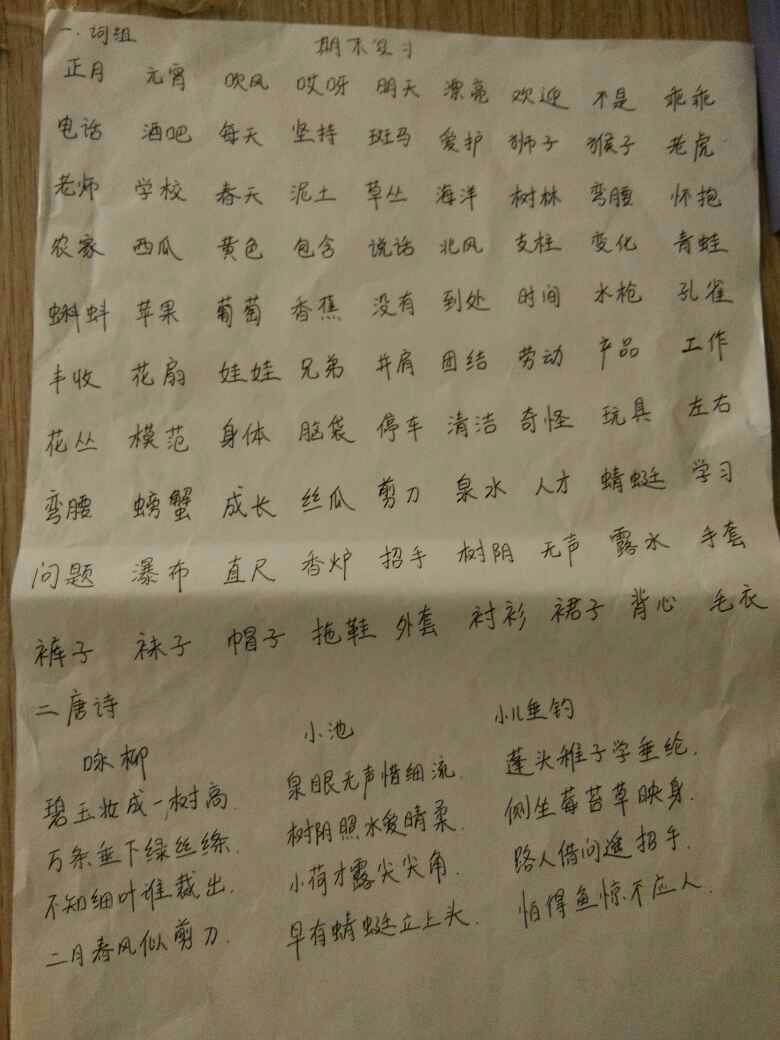 一.词组
期末复习
正月 元宵 吹风 哎呀 明天 漂亮 欢迎 不是 乖乖
电话 酒吧 每天 坚持 斑马 爱护 狮子 猴子 老虎
老师 学校 春天 泥土 草丛 海洋 树林 弯腰 怀抱
农家 西瓜 黄色 包含 说话 北风 支柱 变化 青蛙
蝌蚪 苹果 葡萄 香蕉 没有 到处 时间 水枪 孔雀
丰收 花扇 娃娃 兄弟 并肩 团结 劳动 产品 工作
花丛 模范 身体 脑袋 停车 清洁 奇怪 玩具 左右
弯腰 螃蟹 成长 丝瓜 剪刀 泉水 人才 蜻蜓 学习
问题 瀑布 直尺 香炉 招手 树阴 无声 露水 手套
裤子 袜子 帽子 拖鞋 外套 衬衫 裙子 背心 毛衣
二唐诗
咏柳
碧玉妆成一树高.
万条垂下绿丝绦.
不知细叶谁裁出.
二月春风似剪刀.
小池
泉眼无声惜细流.
树阴照水爱晴柔.
小荷才露尖尖角.
早有蜻蜓立上头.
小儿垂钓
蓬头稚子学垂纶.
侧坐莓苔草映身.
路人借问遥招手.
怕得鱼惊不应人.